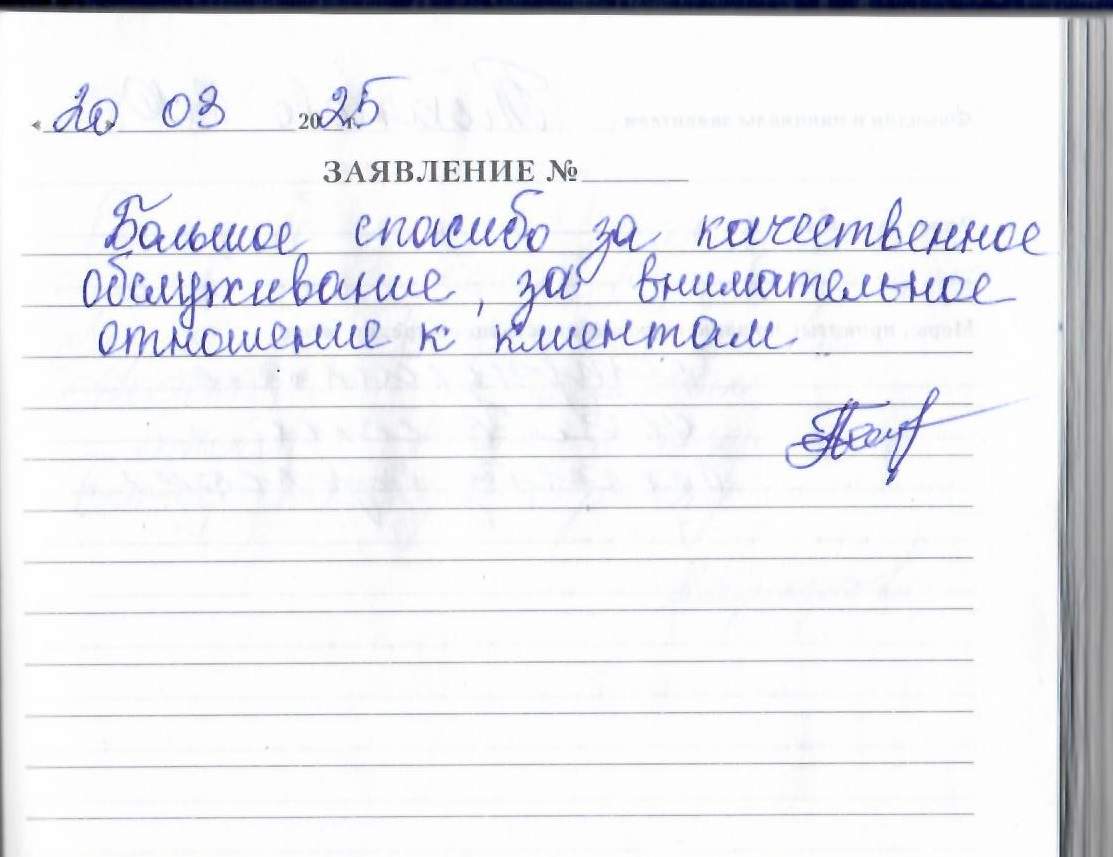 « 20 » 03 2025 г.
ЗАЯВЛЕНИЕ №
Большое спасибо за качественное
обслуживание, за внимательное
отношение к клиентам